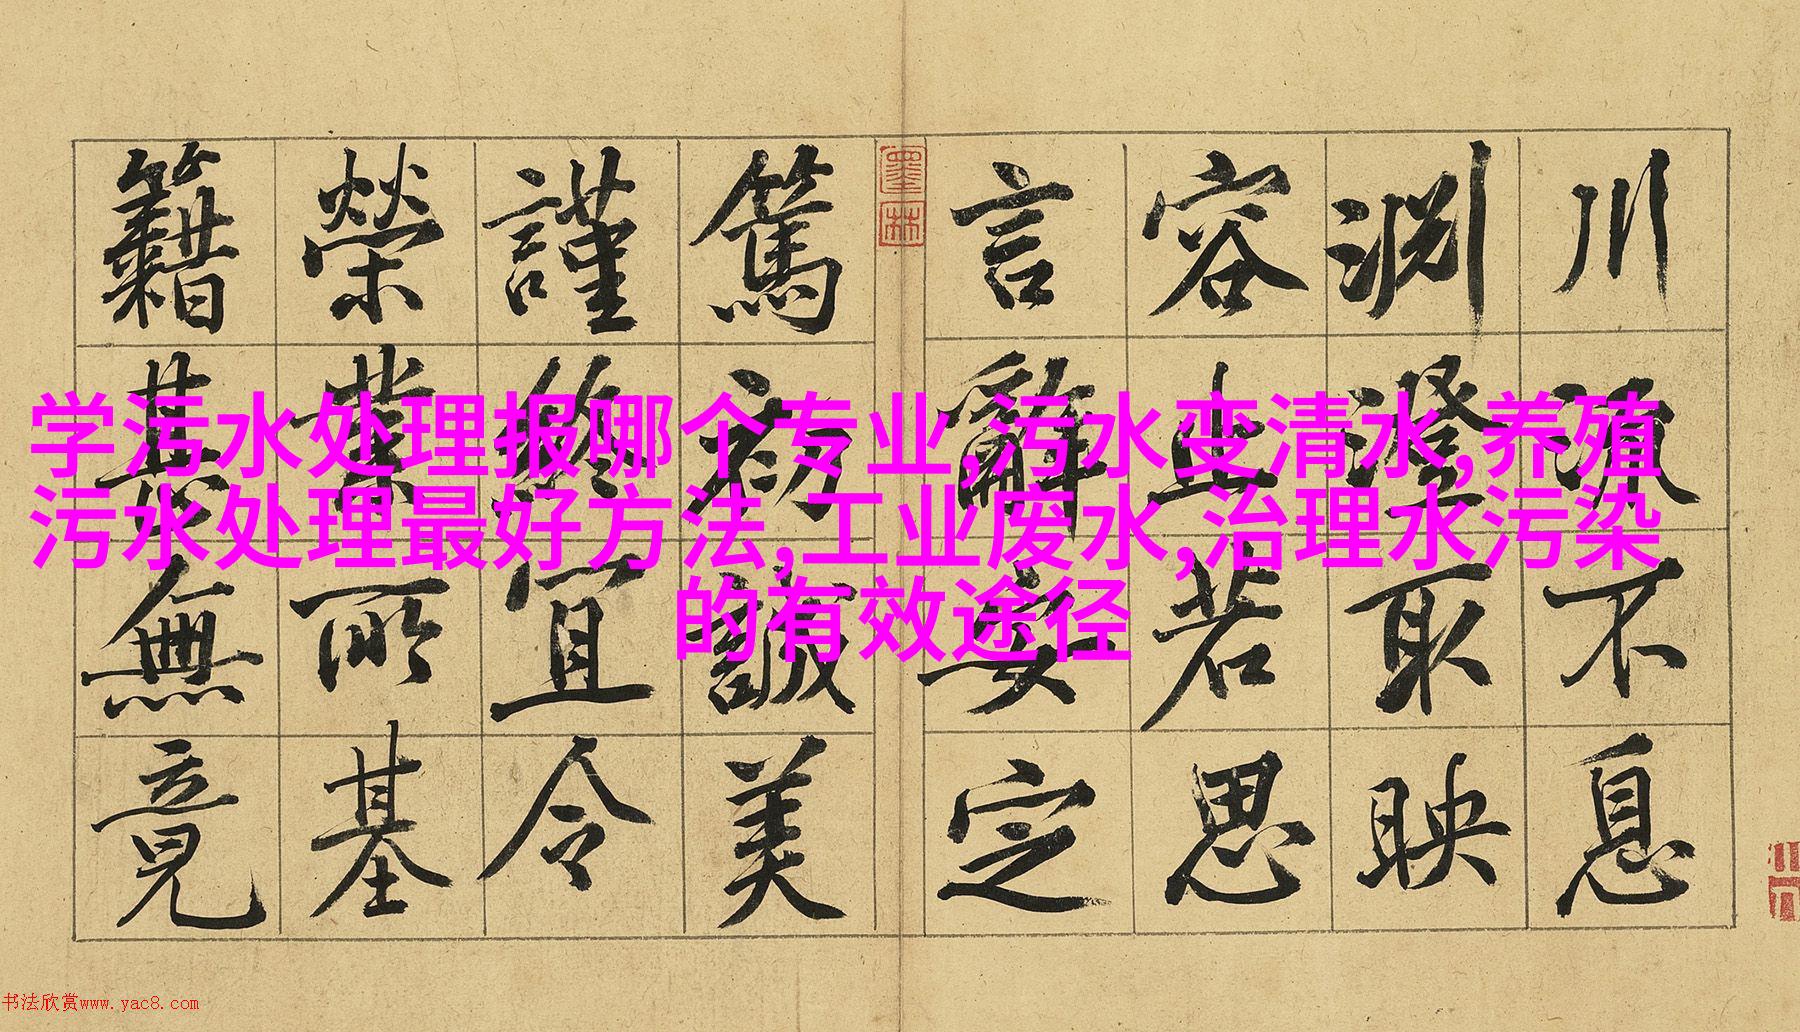 川流不息
淵澄取映
容止若思
言辭安定
墨林
篤初誠美
謹終宜令
榮業所基
籍甚無竟
学污水处理报哪个专业,污水变清水,养殖
污水处理最好方法,工业废水,治理水污染
的有效途径
书法欣赏www.yac8.com